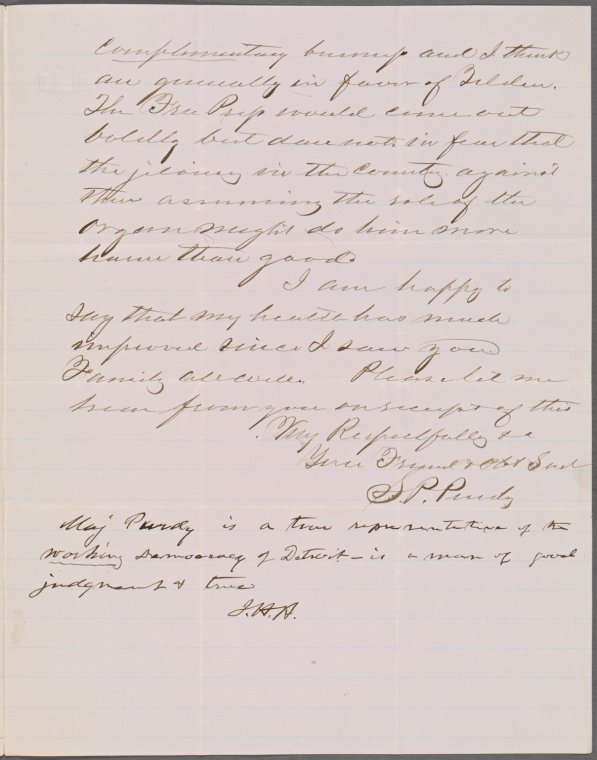 Complimentary bummp and I think
are generally in favor of Tilden.
The Free Press would come out
boldly but dare not in fear that
the jelousy in the county against
their assuming the role of the
organ might do him more
harm than good.
I am happy to
say that my health has much
improved since I saw you
Family all well. Please let me
hear from you on receipt of this
Very Respectfully &c
Your Friend & Obt Servt
S. P. Purdy
Maj Purdy is a true representative of the
working Democracy of Detroit – is a man of good
judgment & true
J.H.A.